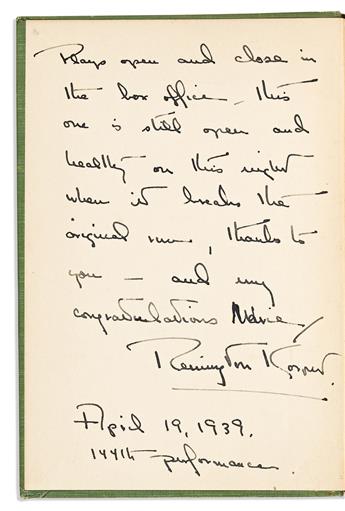 Plays open and close in
the box office – this
one is still open and
healthy on this night
when it breaks the
original run, thanks to
you – and my
congratulations Marie/
Remington
April 19, 1939.
144th performance.